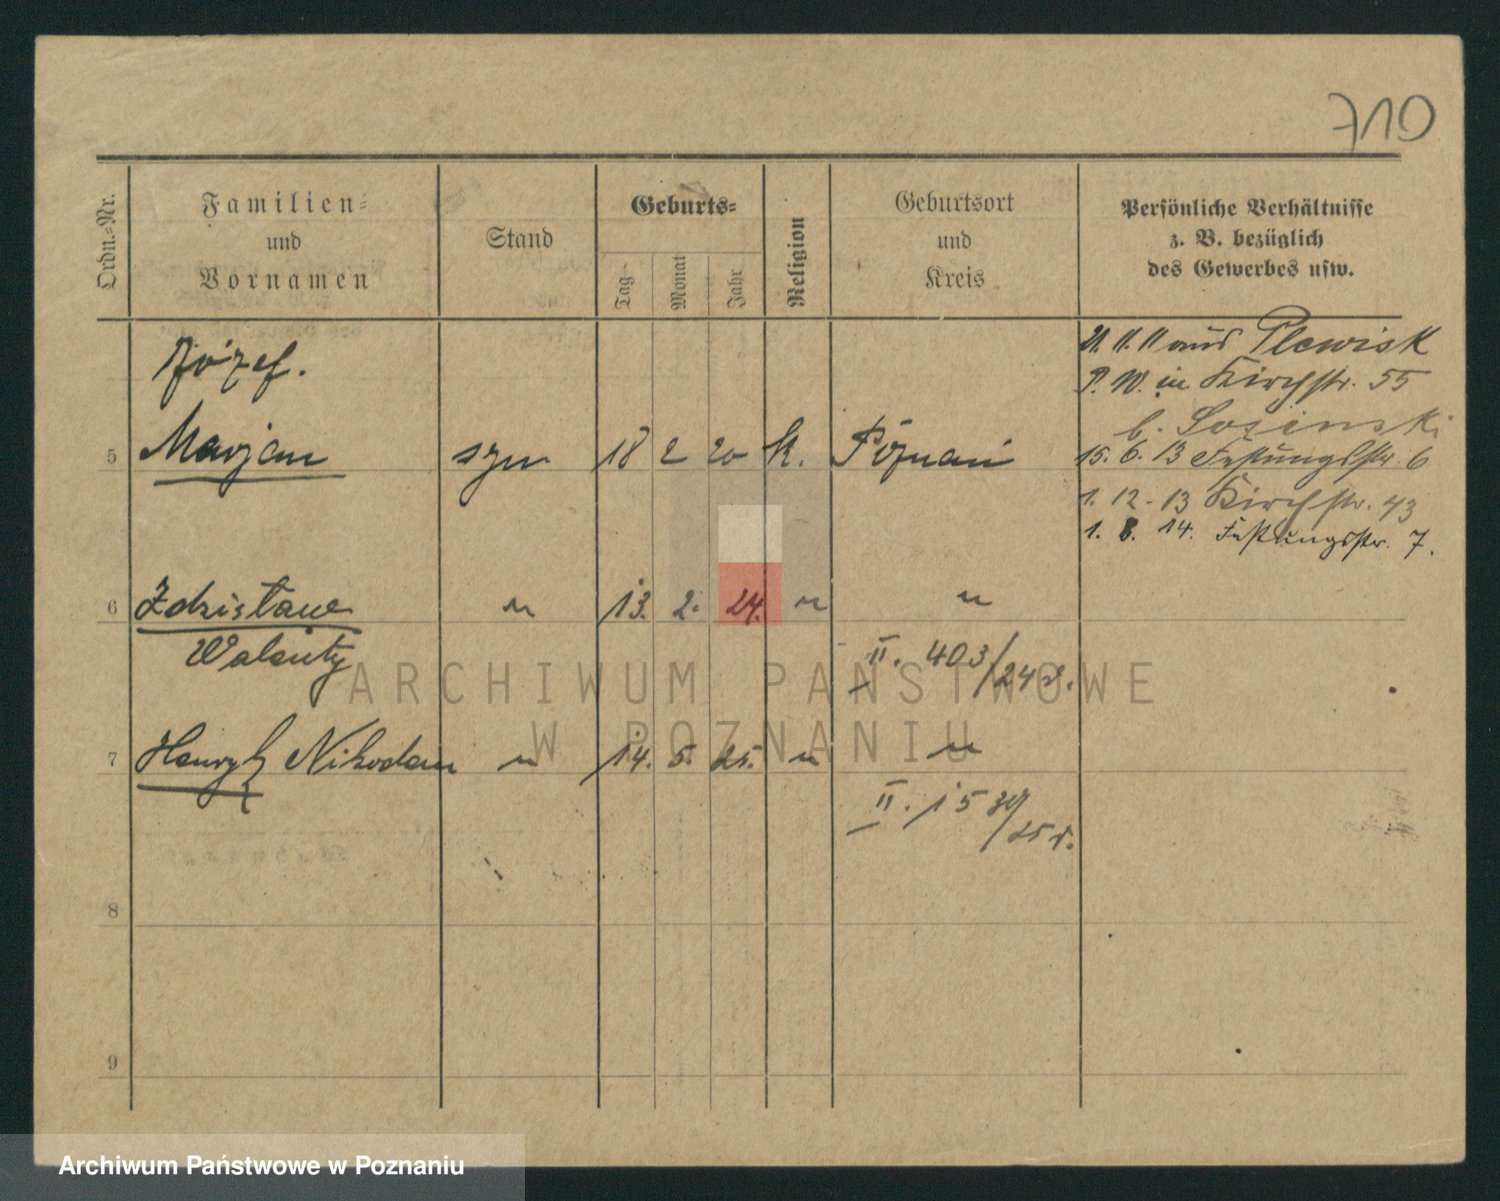 710
Ordn.-Nr.
Familien-
und
Vornamen
Stand
Geburts-
Tag
Monat
Jahr
Religion
Geburtsort
und
Kreis
Persönliche Verhältnisse
z. B. bezüglich
des Gewerbes usw.
Józef.
21. 11. 11 aus Plewisk
P. W. in Kirchstr. 55
b. Sosinski
5 Marjan syn 18 2 20 k. Poznań
15. 6. 13 Festungsstr. 6
1. 12. 13 Kirchstr. 43
1. 8. 14. Festungsstr. 7.
6 Zdzisław " 13. 2. 24. " "
Walenty
II. 403/24
7 Henryk Nikodem " 14. 5. 25. " "
II. 1539/25
8
9
ARCHIWUM PAŃSTWOWE
W POZNANIU
Archiwum Państwowe w Poznaniu